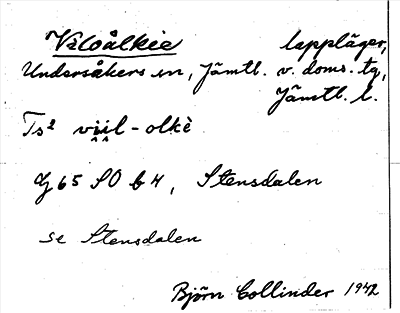 Väloålkie lappläger,
Undersåkers sn, Jämtl. v. doms. tg,
Jämtl. l.
Ts² vi̭i̭l-olkè
G 65 SO b 4, Stensdalen
se Stensdalen
Björn Collinder 1942